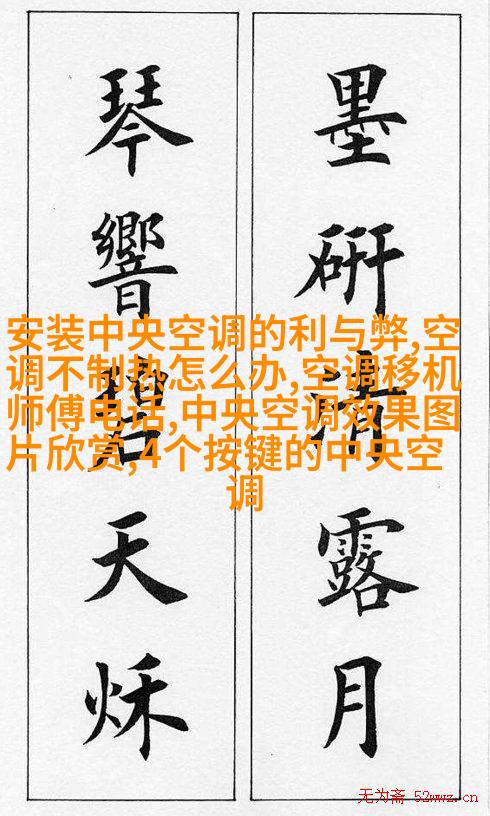 墨研清露月
琴響碧天秌
安装中央空调的利与弊,空
调不制热怎么办,空调移机
师傅电话,中央空调效果图
片欣赏,4个按键的中央空
调
无为斋 52wwz.cn